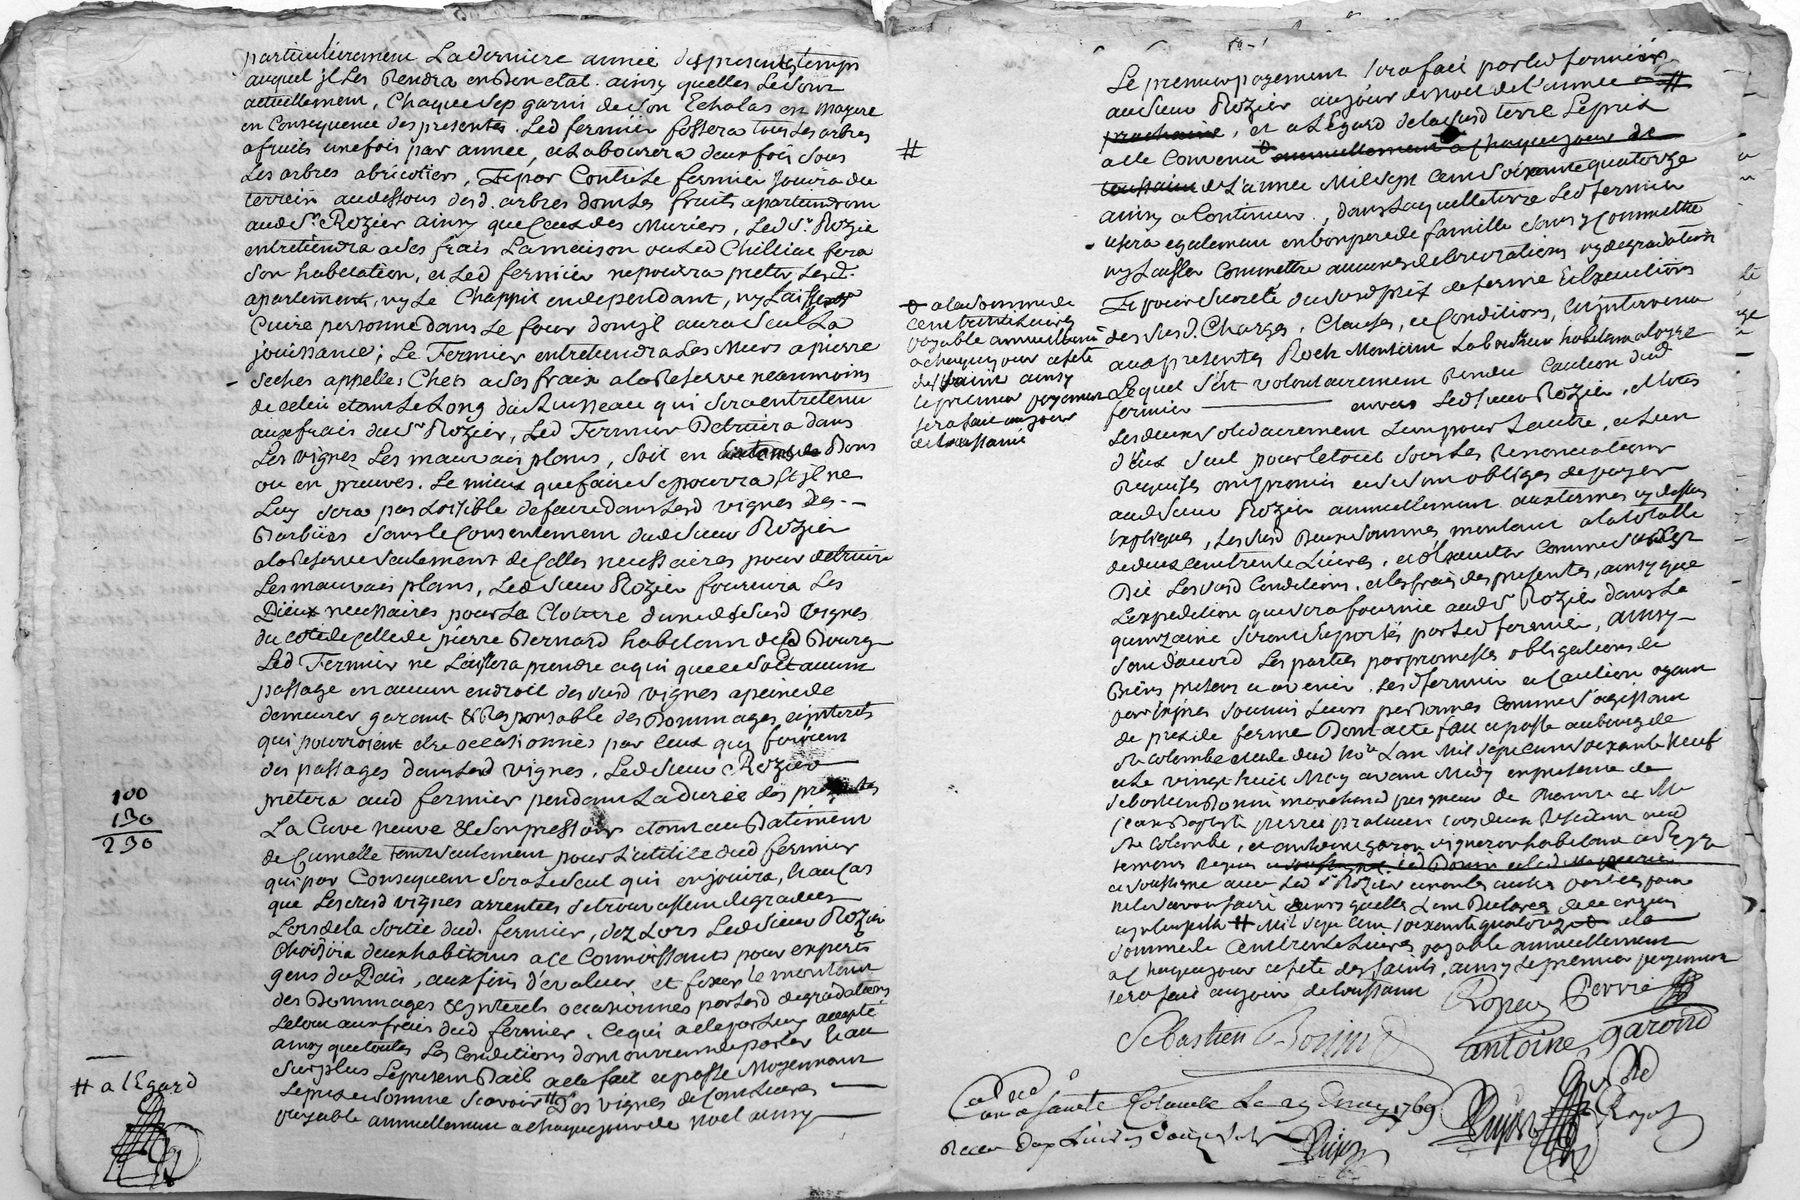 particulierement La derniere année des presents temps
auquel jl Les Rendra en Bon etat. ainsy quelles Le Sont
actuellement, Chaque Sep garni de Son Echalas en Mayere
en Consequence des presentes. Led fermier fossera tous Les arbres
a fruits une fois par année, et Labourera deux fois Sous
Les arbres abricotiers, Et par Contre Le fermier Jouira du
terrein audessous desd. arbres dont Les fruits apartiendront
aud Sr. Rozier ainsy que Ceux des Muriers, Led Sr. Rozie
entretiendra a Ses frais La maison ou Led Chilliac fera
Son habitation, et Led fermier ne pourra preter Lesd.
apartements, ny Le Chappit en dependant, ny Laisser
Cuire personne dans Le four dont jl aura Seul La
jouissance; Le Fermier entretiendra Les Murs a pierre
Seches appellés Chers a Ses fraix a la Reserve neanmoins
de Celui etant Le Long du Ruisseau qui Sera entretenu
aux frais du Sr Rozier, Led Fermier Detruira dans
Les vignes Les mauvais plans, Soit en Bons
ou en preuves. Le mieux que faire Se pourra Et jl ne
Luy Sera pas Loisible de faire dans Lesd vignes des
Barbües Sans Le Consentement dud Sieur Rozier
a la Reserve Seulement de Celles necessaires pour detruire
Les mauvais plans, Led Sieur Rozier fournira Les
Pieux necessaires pour La Cloture d'une desd Susd vignes
du coté de Celle de pierre Bernard habitant dud Bourg
Led Fermier ne Laissera prendre a qui que ce Soit aucun
passage en aucun endroit des Susd vignes a peine de
demeurer garant & Responsable des Dommages, et jnterets
qui pourroient etre occasionnés par Ceux qui feroient
des passages dans Lesd vignes. Led Sieur Rozier
pretera aud fermier pendant La durée des presentes
La Cuve neuve & Son pressoir etant au Batiment
de Cumelle tant Seulement pour L'utilité dud fermier
qui par Consequent Sera Le Seul qui en jouira, Et au Cas
que Lesd Susd vignes arrentées Se trouvassent degradées
Lors de la Sortie dud. fermier, dez Lors Led Sieur Rozier
Choisira deux habitans a Ce Connoissants pour experts
gens du Païs, aux fins d'evaluer et fixer Le montant
des Dommages & jnterets occasionnés par Lesd degradations
Le tout aux frais dud fermier. Ce qui a été par Luy accepté
ainsy que toutes Les Conditions dont on vient de parler Et au
Surplus Le present Bail a été fait et passé Moyennant
Le prix et Somme Scavoir Des vignes de Cent Livres
payable annuellement a Chaque jour de noel ainsy
100
130
230
# a l'Egard
Le premier payement Sera fait par Led fermier
aud Sieur Rozier au jour de noel de L'année #
prochaine, et a L'Egard de la Susd terre Le prix
a été Convenu annuellement a Chaque jour de
toussaint de L'année Mil Sept Cent Soixante quatorze
ainsy a Continuer, dans Laquelle terre Led fermier
usera egalement en bon pere de famille Sans y Commettre
ny Laisser Commettre aucunes deteriorations ny degradations
Et pour Sureté du Susd prix de ferme Et Executions
des Susd. Charges, Clauses, et Conditions, Est intervenu
aux presentes Roch Montaint Laboureur habitant a Loyre
Lequel S'est volontairement Rendu Caution dud
fermier envers Led Sieur Rozier, Mises
Les deux Solidairement L'un pour L'autre, et L'un
d'Eux Seul pour Le tout Sous Les Renonciations
Requises ont promis et Se Sont obligés de payer
aud Sieur Rozier annuellement aux termes cy dessus
Expliqués, Les Susd Deux Sommes, montant a la totalle
de deux cent trente Livres, et d'executer Comme Sus Est
Dit Les Susd Conditions. et Les frais des presentes, ainsy que
L'expedition que Sera fournie aud Sr Rozier dans La
quinzaine Seront Suportés par Led fermier, ainsy
Sont d'acord Les parties par promesses obligations de
Biens presens et avenir. Lesd fermier et Caution ayant
par Exprés Soumis Leurs personnes Comme S'agissant
de prix de ferme Dont acte fait et passé au bourg de
Ste Colombe etude dud Nore L'an Mil Sept Cent Soixante Neuf
et Le vingt huit May avant Midy en presence de
Sebastien Bonin marchand peigneur de Chanvre et Me
Jean Baptiste pierre praticien tous deux Residant aud
Ste Colombe, et antoine garon vigneron habitant a
temoins Requis
et Soussignés avec Led Sr Rozier et non Les autres parties pour
ne Le Savoir faire de ce enquis
# Mil Sept Cent Soixante quatorze a la
Somme de Cent trente Livres payable annuellement
a Chaque jour et fete des Saints, ainsy Le premier payement
Sera fait au jour de toussaint
a la Somme de
Cent trente Livres
payable annuellement
a Chaque jour et fete
des Saints ainsy
Le premier payement
Sera fait au jour
de toussaint
#
Rozier Pierre
Sebastien Bonin
antoine garond
a Sainte Colombe Le 29 may 1769